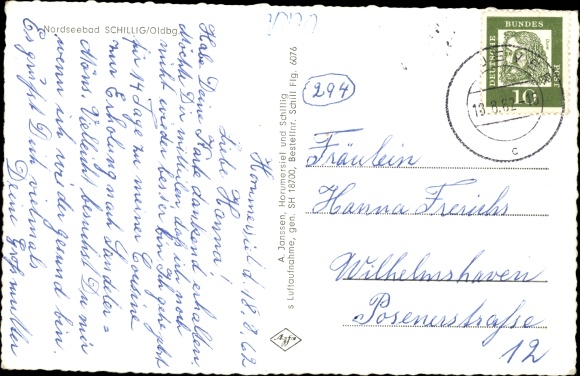 Nordseebad SCHILLIG/Oldbg.
Hormersiel d. 18.8.62
Liebe Hanna!
Habe Deine Karte dankend erhalten.
Möchte Dir mitteilen daß ich noch
nicht wieder besser bin. Ich gehe jetzt
für 14 Tage zu meiner Cousine
zur Erholung nach Sandler=
Möns. Vielleicht besuchst Du mir
wenn ich wieder gesund bin.
Es grüßt Dich vielmals
Deine Großmutter
A. Janssen, Horumersiel und Schillig
s Luftaufnahme, gen. SH 18700, Bestellnr. Schill Flg. 6076
294
DEUTSCHE BUNDES POST
10
JEVER
18.8.62
c
Fräulein
Hanna Frerichs
Wilhelmshaven
Posenerstraße
12